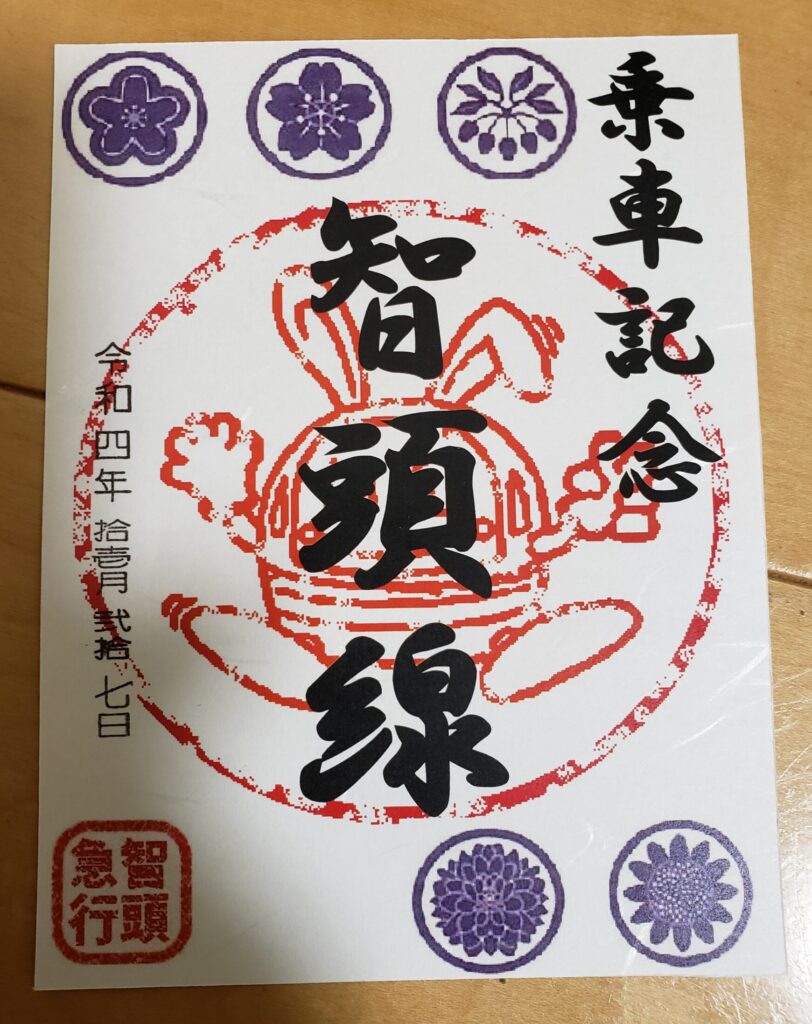 乗車記念
智頭線
令和四年拾壱月弐拾七日
智頭
急行